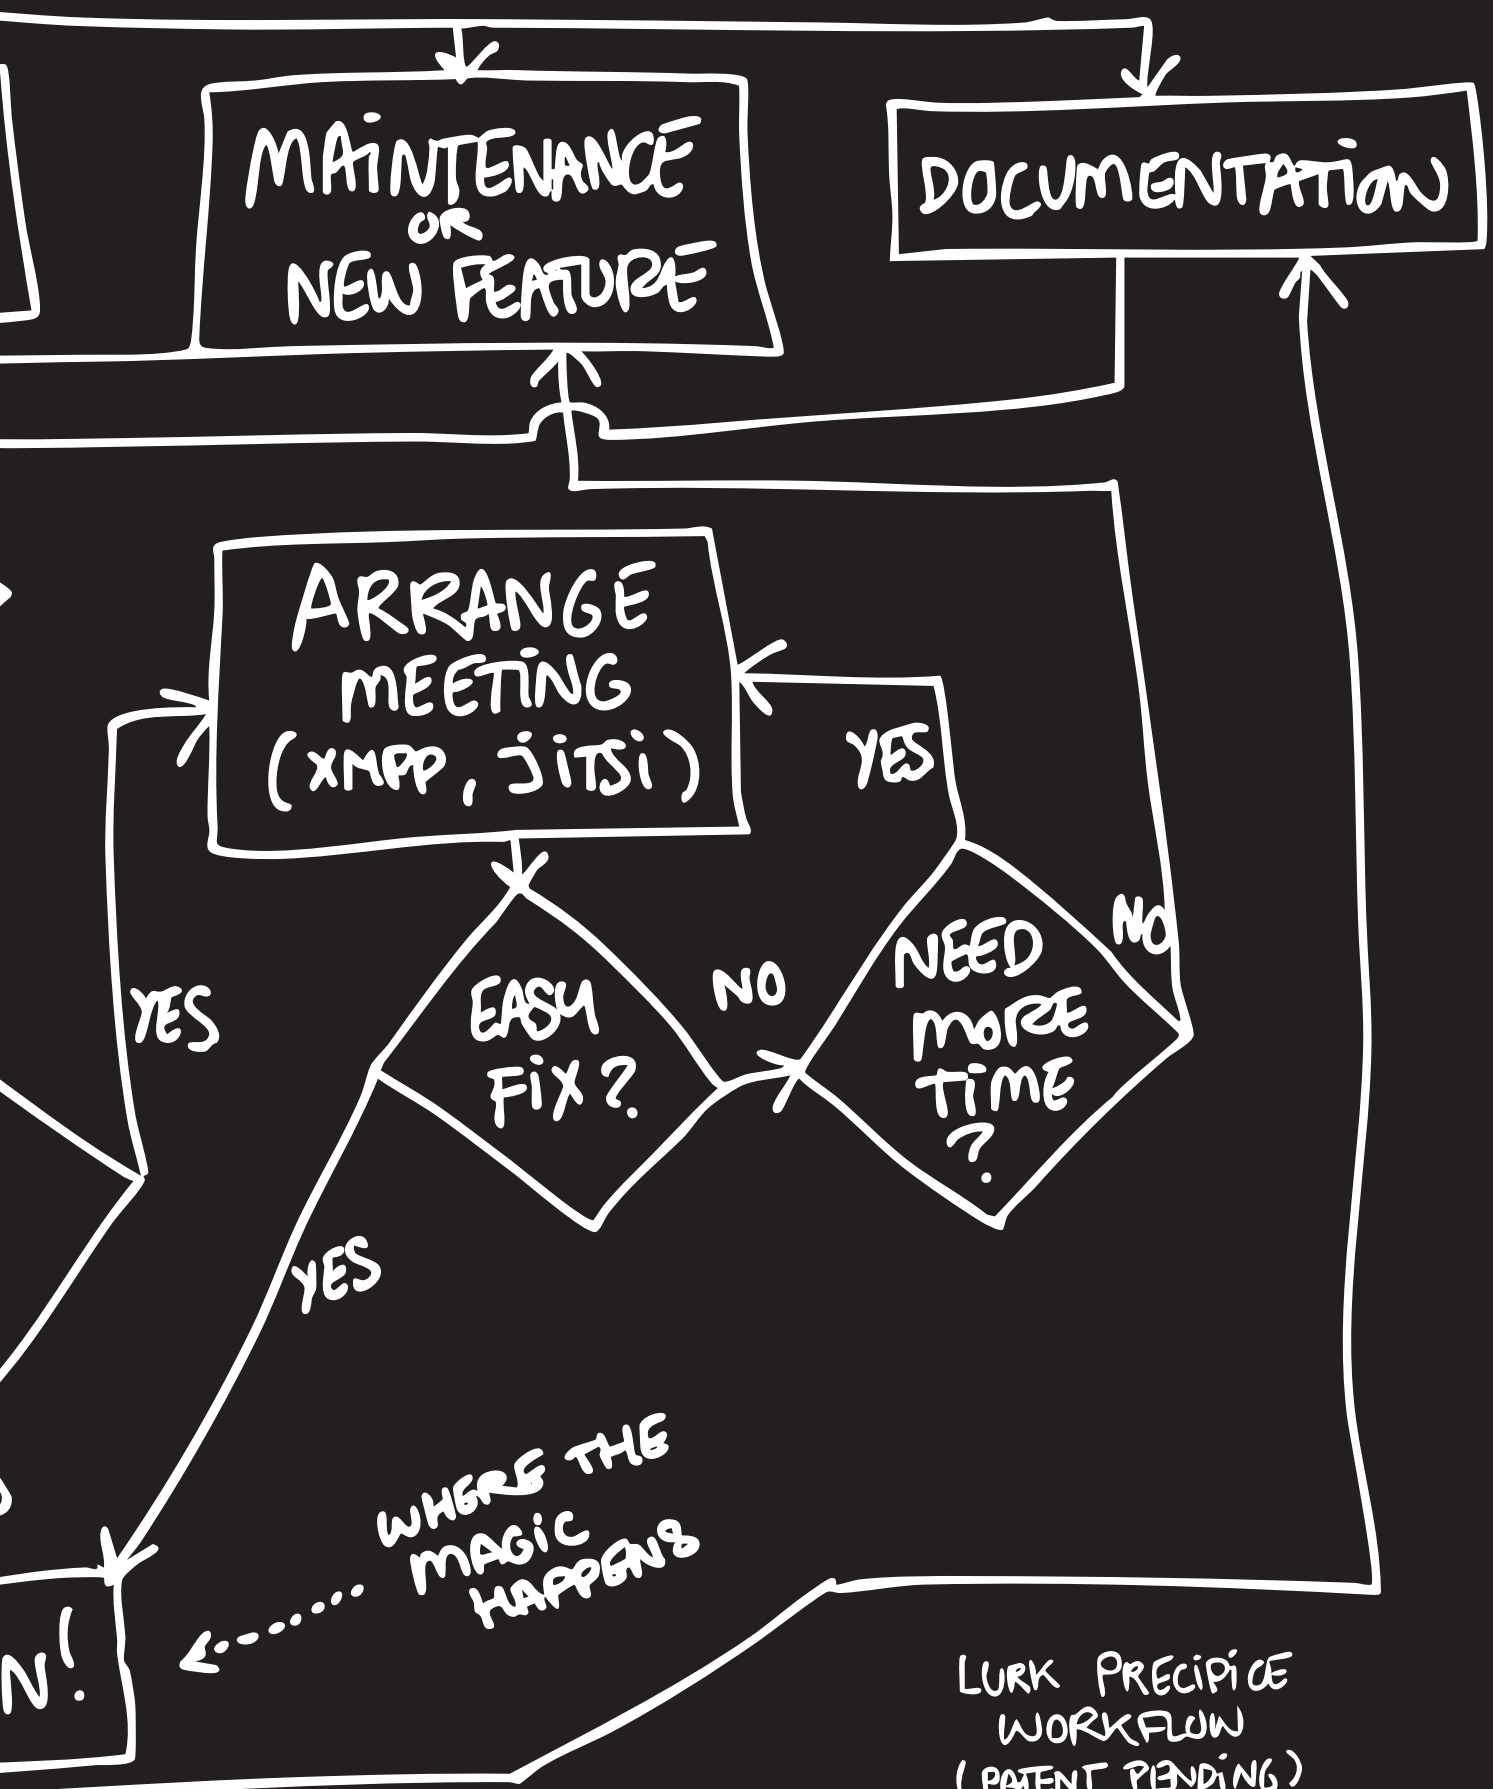 MAiNTENANCE
OR
NEW FEATURE
DOCUMENTATiON
ARRANGE
MEETiNG
(XMPP, jiTSi)
YES
NO
YES
EASY
FiX?
NO
NEED
MORE
TiME
?
YES
WHERE THE
MAGiC
HAPPENS
N!
LURK PRECiPiCE
WORKFLOW
(PATENT PENDiNG)